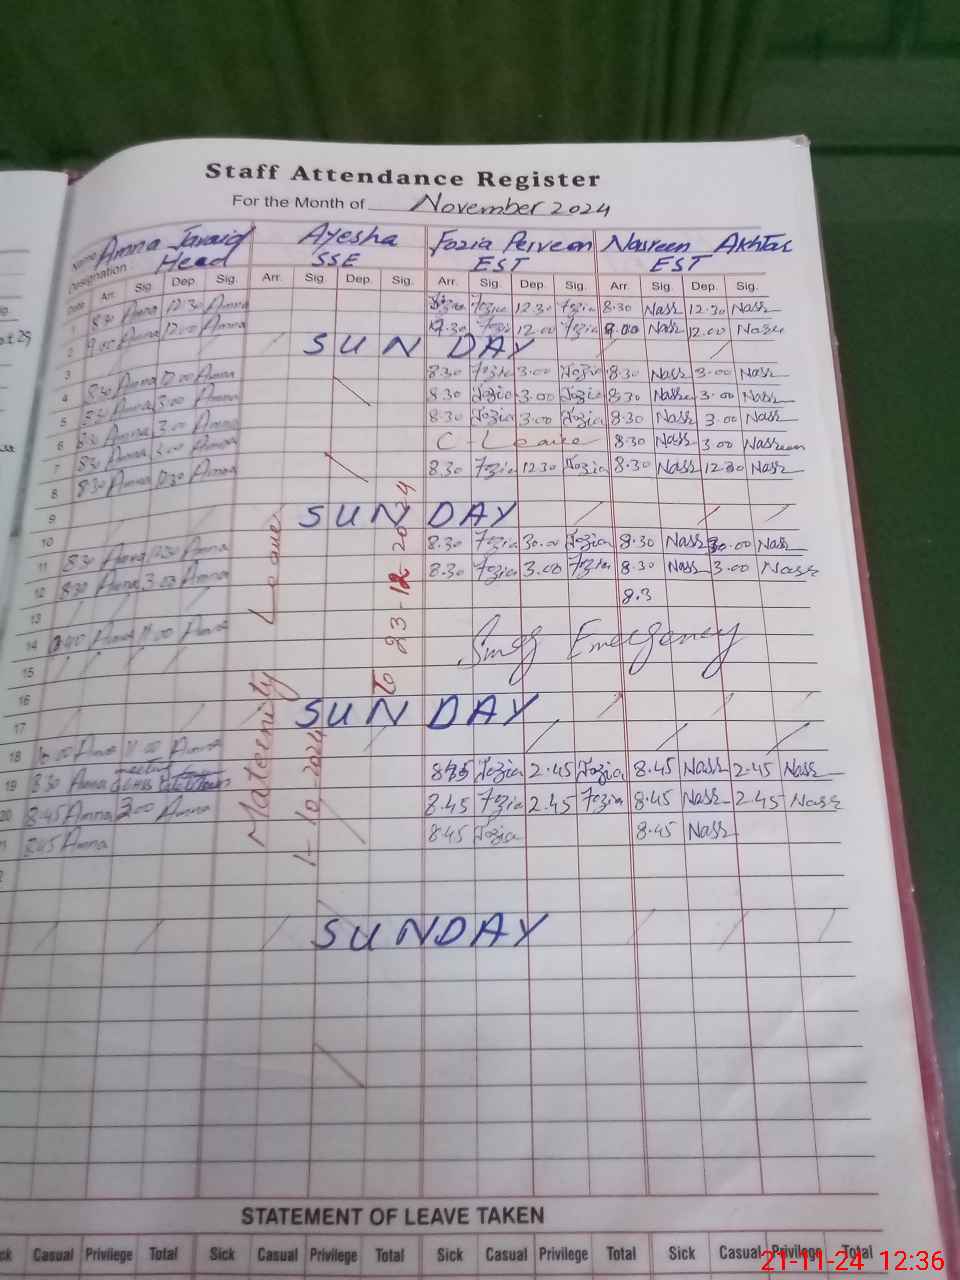 Staff Attendance Register
For the Month of November 2024
Name Amna Javaid Ayesha Fozia Perveen Nasreen Akhtar
Designation: Head SSE EST EST
Date Arr. Sig. Dep. Sig. Arr. Sig. Dep. Sig. Arr. Sig. Dep. Sig. Arr. Sig. Dep. Sig.
1 8.30 Amna 12.30 Amna Fozia 12.30 Fozia 8.30 Nasr 12.30 Nasr
2 9.00 Amna 12.00 Amna 9.30 Fozia 12.00 Fozia 9.00 Nasr 12.00 Nasr
3 SUNDAY
4 8.30 Amna Amna 8.30 Fozia 3.00 Fozia 8.30 Nasr 3.00 Nasr
5 8.30 Amna 3.00 Amna 8.30 Fozia 3.00 Fozia 8.30 Nasr 3.00 Nasr
6 8.30 Amna 3.00 Amna 8.30 Fozia 3.00 Fozia 8.30 Nasr 3.00 Nasr
7 8.30 Amna 3.00 Amna C-Leave 8.30 Nasr 3.00 Nasreen
8 8.30 Amna 12.30 Amna 8.30 Fozia 12.30 Fozia 8.30 Nasr 12.30 Nasr
9
10 SUNDAY
11 8.30 Amna Amna 8.30 Fozia 30.00 Fozia 8.30 Nasr 30.00 Nasr
12 8.30 Amna 3.00 Amna 8.30 Fozia 3.00 Fozia 8.30 Nasr 3.00 Nasr
13 8.3
14 Amna 11.00 Amna Smog Emergency
15
16
17 SUNDAY
18 10.00 Amna 11.00 Amna
19 8.30 Amna meeting 8.45 Fozia 2.45 Fozia 8.45 Nasr 2.45 Nasr
20 8.45 Amna 3.00 Amna 8.45 Fozia 2.45 Fozia 8.45 Nasr 2.45 Nasr
8.45 Amna 8.45 Fozia 8.45 Nasr
Maternity Leave
1-10-2024 To 23-12-2024
SUNDAY
STATEMENT OF LEAVE TAKEN
Casual Privilege Total Sick Casual Privilege Total Sick Casual Privilege Total Sick Casual Privilege Total
21-11-24 12:36